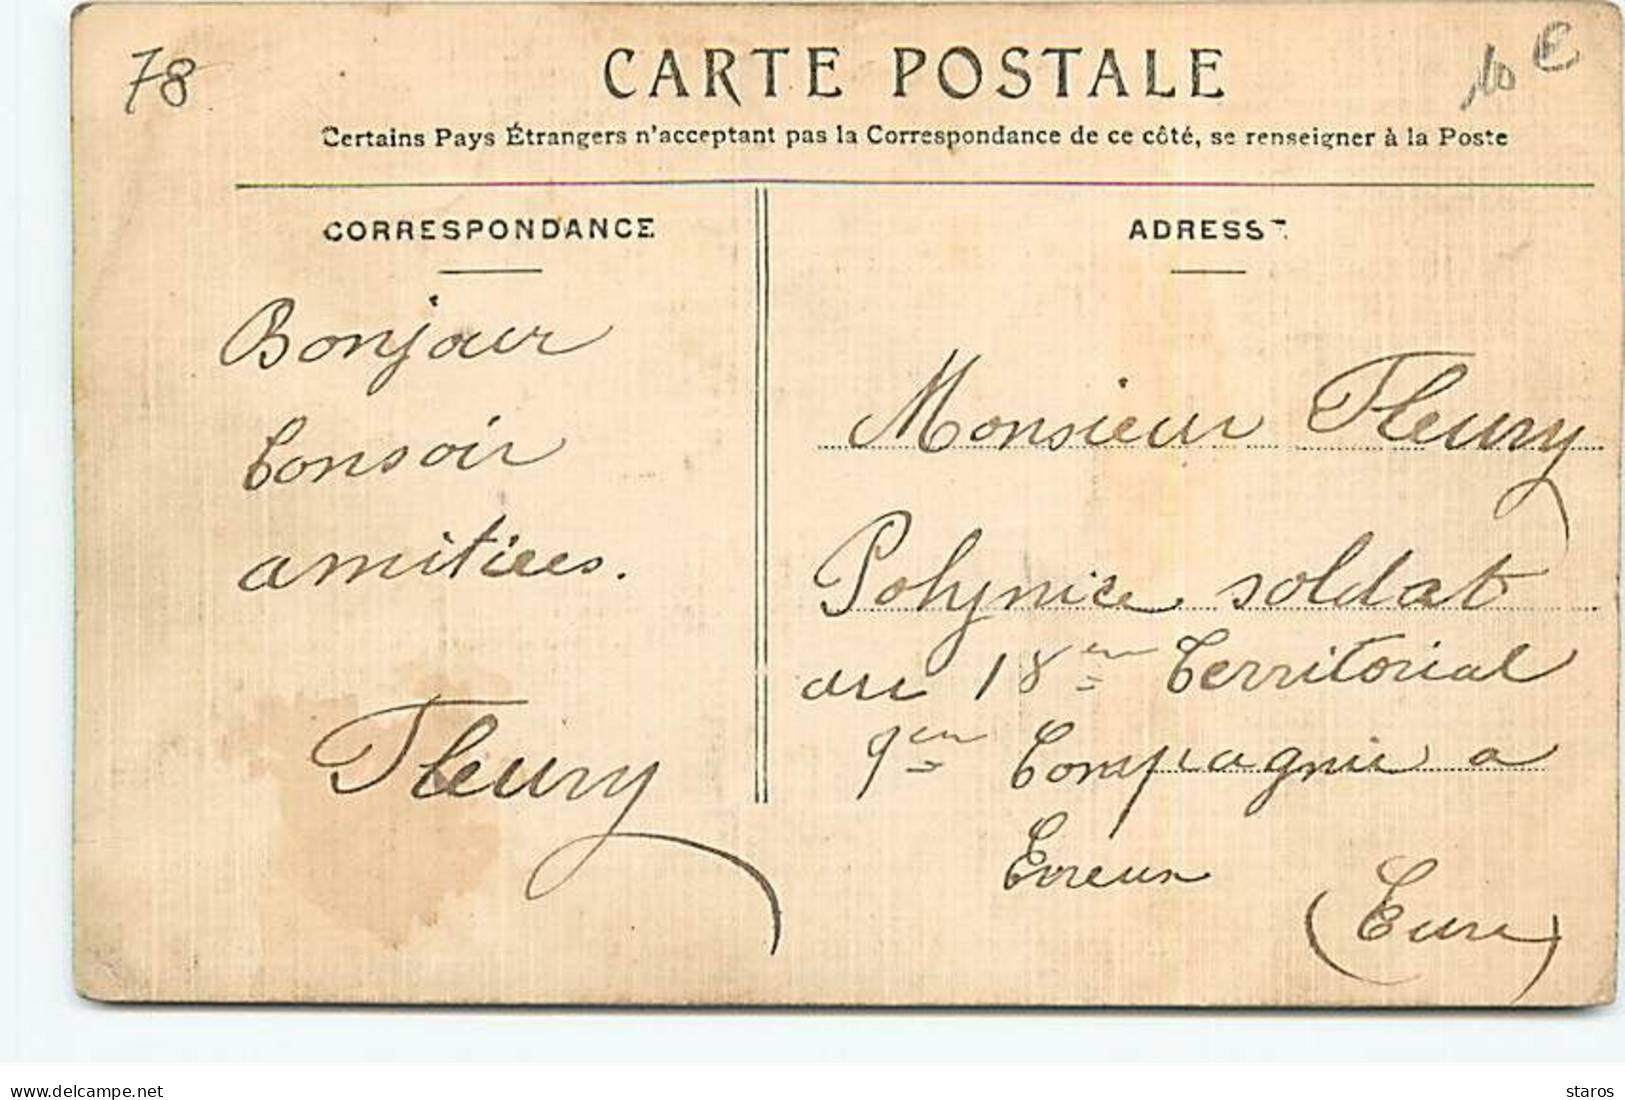 78
10 €
CARTE POSTALE
Certains Pays Étrangers n'acceptant pas la Correspondance de ce côté, se renseigner à la Poste
CORRESPONDANCE
Bonjour
bonsoir
amitiées.
Fleury
ADRESSE
Monsieur Fleury
Polynice soldat
au 18em Territorial
9em Compagnie a
Evreux
(Eure)
www.delcampe.net
staros